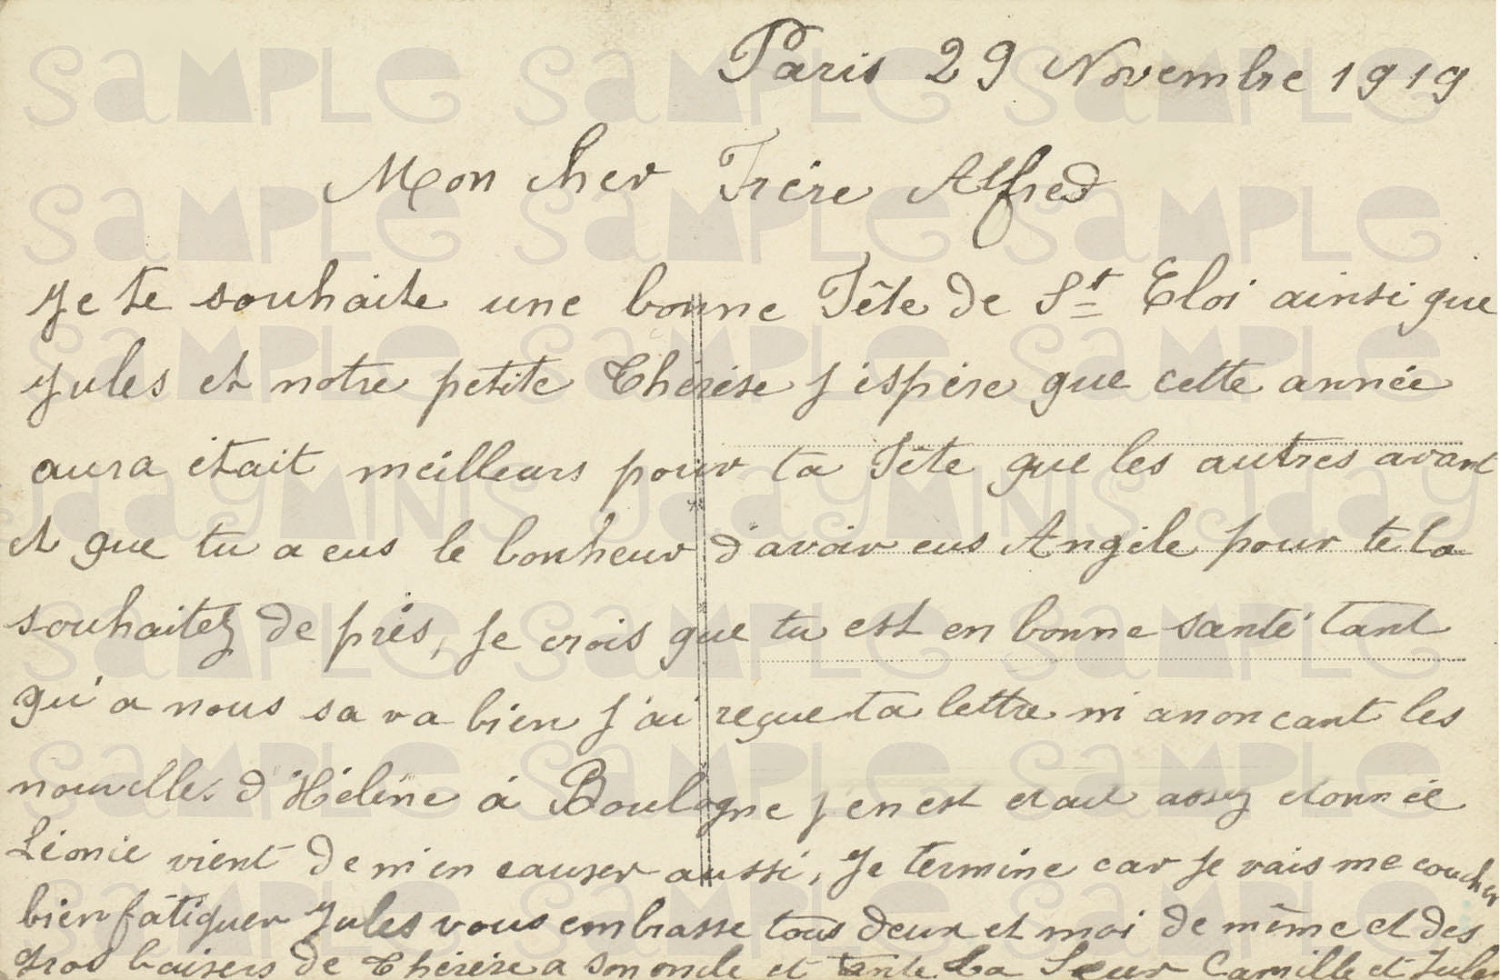 Paris 29 Novembre 1919
Mon cher Frère Alfred
Je te souhaite une bonne Fête de St Eloi ainsi que
Jules et notre petite Thérèse j'espère que cette année
aura était meilleurs pour ta Fête que les autres avant
et que tu a eus le bonheur d'avoir eus Angèle pour te la
souhaitez de près, je crois que tu est en bonne santé tant
qu'a nous sa va bien j'ai reçue ta lettre m'anonçant les
nouvelles d'Hélène à Boulogne j'en est etait assez etonnée
Léonie vient de m'en causer aussi, Je termine car je vais me coucher
bien fatiguer Jules vous embrasse tous deux et moi de même et des
gros baisers de Thérèse a son oncle et tante ta Sœur Camille et Jules
SAMPLE SAMPLE SAMPLE
SAMPLE SAMPLE SAMPLE
SAMPLE SAMPLE SAMPLE
JaayMINIS JaayMINIS Jaay
SAMPLE SAMPLE SAMPLE
SAMPLE SAMPLE SAMPLE
SAMPLE SAMPLE SAMPLE